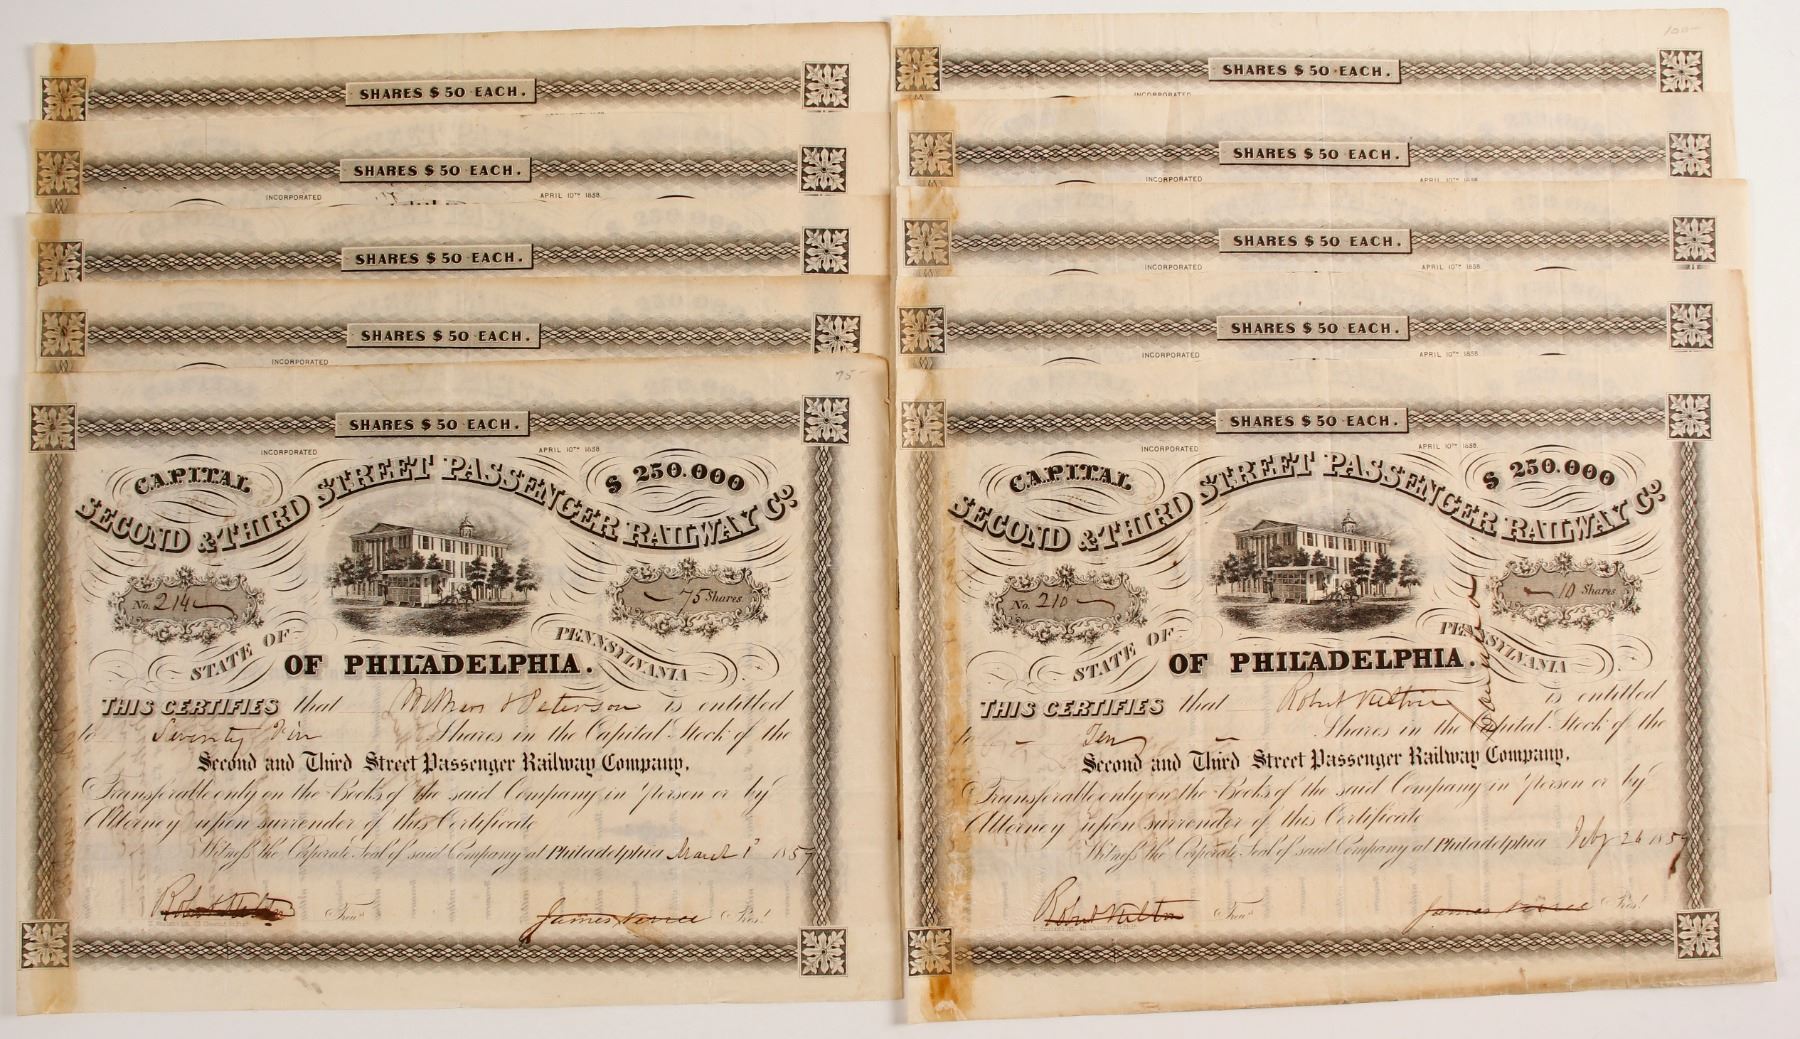 SHARES $50 EACH.
SHARES $50 EACH.
INCORPORATED APRIL 10TH 1858.
SHARES $50 EACH.
SHARES $50 EACH.
INCORPORATED
75-
SHARES $50 EACH.
INCORPORATED APRIL 10TH 1858.
CAPITAL $250.000
SECOND & THIRD STREET PASSENGER RAILWAY Co.
No. 214 75 Shares
STATE OF PENNSYLVANIA
OF PHILADELPHIA.
THIS CERTIFIES that & Peterson is entitled
to Seventy Five Shares in the Capital Stock of the
Second and Third Street Passenger Railway Company,
Transferable only on the Books of the said Company in person or by
Attorney upon surrender of this Certificate
Witness the Corporate Seal of said Company at Philadelphia March 1st 1859
Robert Kelton Treasr. James Verree Prest.
100-
SHARES $50 EACH.
INCORPORATED
SHARES $50 EACH.
INCORPORATED APRIL 10TH 1858.
SHARES $50 EACH.
INCORPORATED APRIL 10TH 1858.
SHARES $50 EACH.
INCORPORATED APRIL 10TH 1858.
SHARES $50 EACH.
INCORPORATED APRIL 10TH 1858.
CAPITAL $250.000
SECOND & THIRD STREET PASSENGER RAILWAY Co.
No. 210 10 Shares
STATE OF PENNSYLVANIA
OF PHILADELPHIA.
THIS CERTIFIES that Robert Kelton is entitled
to Ten Shares in the Capital Stock of the
Second and Third Street Passenger Railway Company,
Transferable only on the Books of the said Company in person or by
Attorney upon surrender of this Certificate
Witness the Corporate Seal of said Company at Philadelphia Feby 26 1859
Robert Kelton Treasr. James Verree Prest.